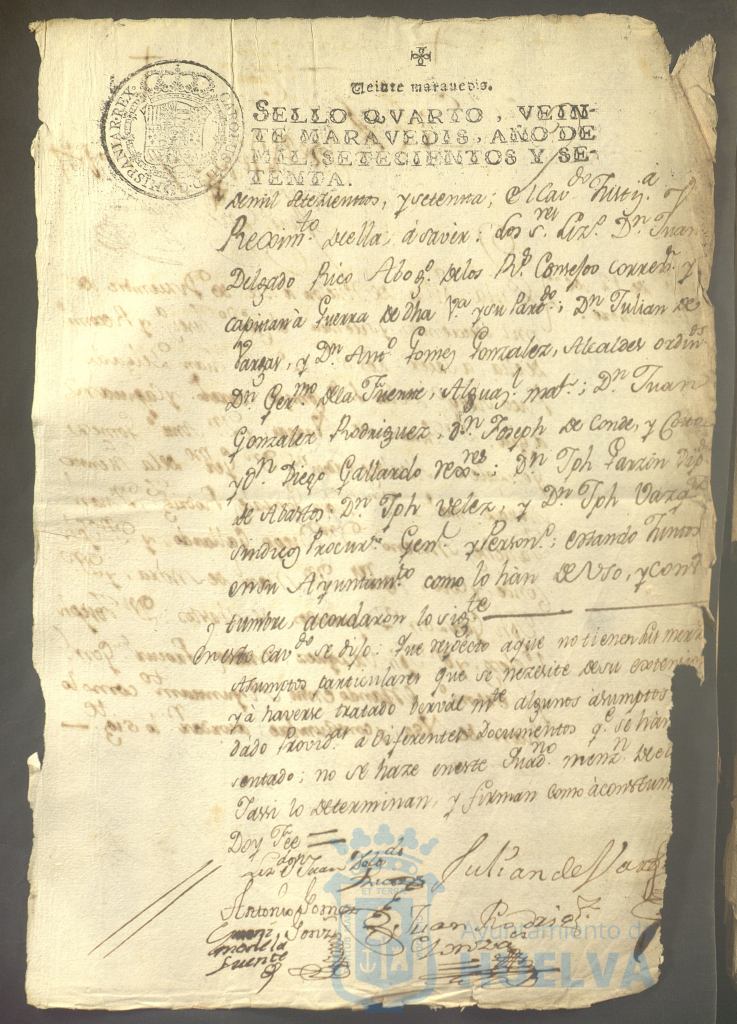 Veinte maravedis.
SELLO QVARTO, VEIN-
TE MARAVEDIS, AÑO DE
MIL SETECIENTOS Y SE-
TENTA.
CAROLVS III D.G. HISPANIAR. REX
de mil setezientos, y setenta; el Cav.do Justiz.a y
Reximto. de ella, á saver: los S.res Liz.do Dn. Juan
Delgado Rico Abog.o de los R.s Consejos correx.r y
capitan à Guerra de dha V.a y su Part.do; Dn. Julian de
Vargas, y Dn. Ant.o Gomez Gonzalez, Alcaldes ordin.s
Dn. Ger.mo de la Fuente, Alguaz.l mor.; Dn. Juan
Gonzalez Rodriguez, Dn. Joseph de Conde, y
y Dn. Diego Gallardo rex.res; Dn. Jph Garzon Dip.do
de Abastos, Dn. Jph Velez, y Dn. Jph
Sindicos Procur.s Gen.l y Person.o; estando Juntos
en su Ayuntam.to como lo han de Uso, y cos
tumbre, acordaron lo sig.te
En este Cav.do se dijo: Que respecto aque no tienen sus merz.s
Asumptos particulares que se nezesite de su extension
y à haverse tratado Verval m.te algunos asumptos
dado Provid.s a diferentes Documentos q.e se han
sentado; no se haze en este Quad.no menz.n de el
Y assi lo determinan, y firman como à costum
Doy Fee
Liz.do Dn. Juan Delg.do
Rico
Julian de Varg
Antonio Gomez
Gonz
Juan Rodrig.z
Gonza
de la
fuente
ET TERRAE
Ayuntamiento de
HUELVA